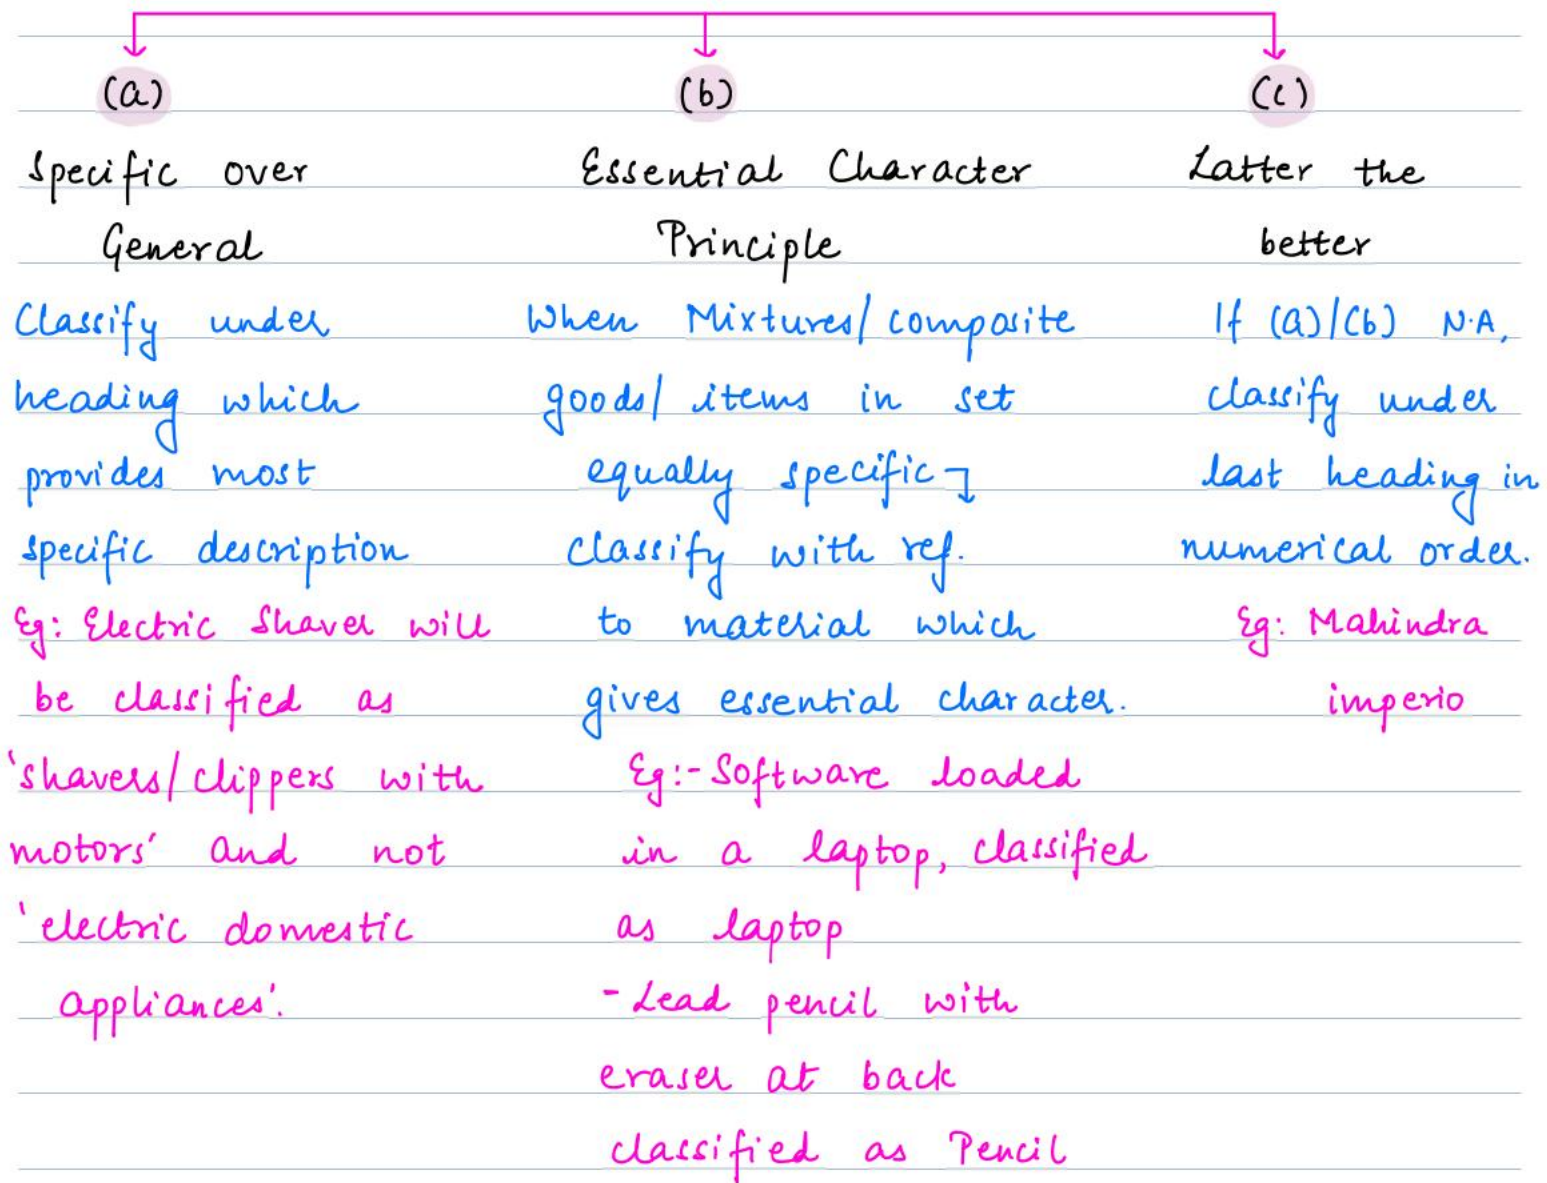 (a)
Specific over
General
Classify under
heading which
provides most
specific description
Eg: Electric Shaver will
be classified as
'shavers/clippers with
motors' and not
'electric domestic
appliances'.
(b)
Essential Character
Principle
When Mixtures/composite
goods/ items in set
equally specific
classify with ref.
to material which
gives essential character.
Eg:- Software loaded
in a laptop, classified
as laptop
- Lead pencil with
eraser at back
classified as Pencil
(c)
Latter the
better
If (a)/(b) N.A,
classify under
last heading in
numerical order.
Eg: Mahindra
imperio